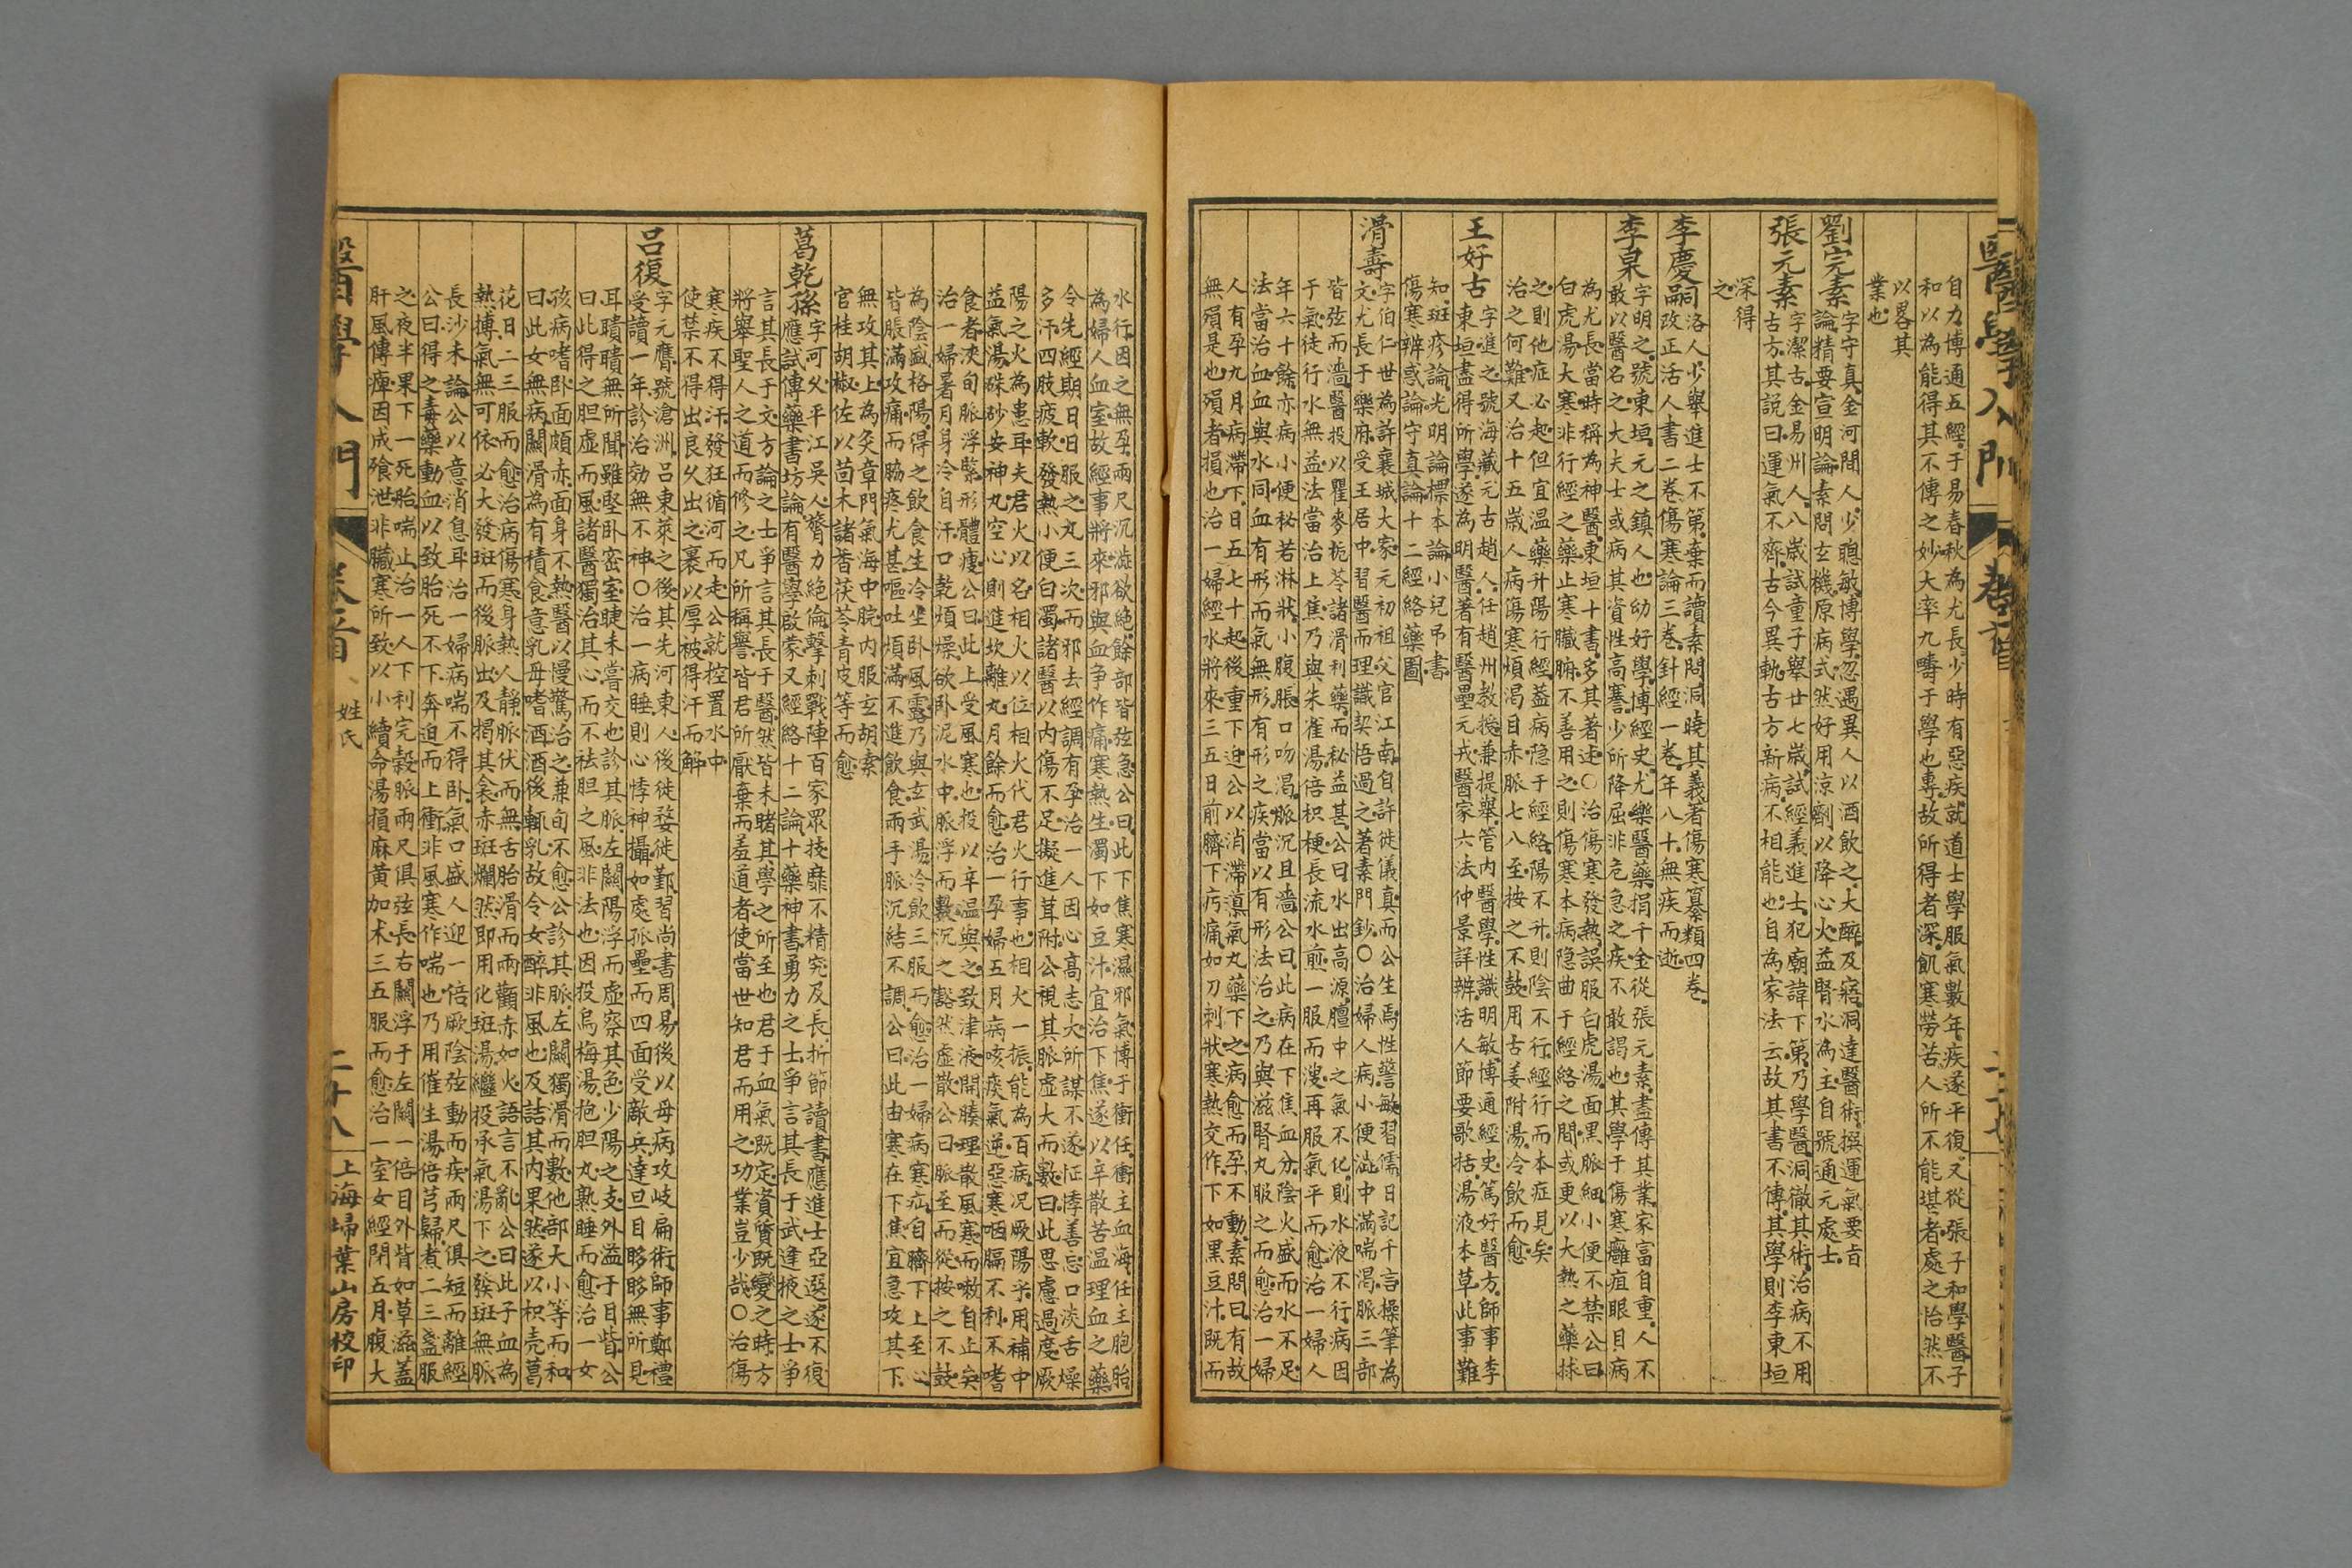 醫學入門
卷首
自力博通五經于易春秋為尤長少時有惡疾就道士學服氣數年疾遂平復又從張子和學醫子
和以為能得其不傳之妙大率九疇于學也專故所得者深飢寒勞苦人所不能堪者處之怡然不
以畧其
業也
劉完素
字守真金河間人少聰敏博學忽遇異人以酒飲之大醉及寤洞達醫術撰運氣要旨
論精要宣明論素問玄機原病式然好用涼劑以降心火益腎水為主自號通元處士
張元素
字潔古金易州人八歲試童子舉廿七歲試經義進士犯廟諱下第乃學醫洞徹其術治病不用
古方其說曰運氣不齊古今異軌古方新病不相能也自為家法云故其書不傳其學則李東垣
深得
之
李慶嗣
洛人少舉進士不第棄而讀素問洞曉其義著傷寒纂類四卷
改正活人書二卷傷寒論三卷針經一卷年八十無疾而逝
李杲
字明之號東垣元之鎮人也幼好學博經史尤樂醫藥捐千金從張元素盡傳其業家富自重人不
敢以醫名之大夫士或病其資性高謇少所降屈非危急之疾不敢謁也其學于傷寒癰疽眼目病
為尤長當時稱為神醫東垣十書多其著述○治傷寒發熱誤服白虎湯面黑脈細小便不禁公曰
白虎湯大寒非行經之藥止寒臟腑不善用之則傷寒本病隱曲于經絡之間或更以大熱之藥捄
之則他症必起但宜溫藥升陽行經益病隱于經絡陽不升則陰不行經行而本症見矣
治之何難又治十五歲人病傷寒煩渴目赤脈七八至按之不鼓用古姜附湯冷飲而愈
王好古
字進之號海藏元古趙人任趙州教授兼提舉管內醫學性識明敏博通經史篤好醫方師事李
東垣盡得所學遂為明醫著有醫壘元戎醫家六法仲景詳辨活人節要歌括湯液本草此事難
知斑疹論光明論標本論小兒吊書
傷寒辨惑論守真論十二經絡藥圖
滑壽
字伯仁世為許襄城大家元初祖父官江南自許徙儀真而公生焉性警敏習儒日記千言操筆為
文尤長于樂府受王居中習醫而理識契悟過之著素問鈔○治婦人病小便澁中滿喘渴脈三部
皆弦而濇醫投以瞿麥梔苓諸滑利藥而秘益甚公曰水出高源膻中之氣不化則水液不行病因
于氣徒行水無益法當治上焦乃與朱雀湯倍枳梗長流水煎一服而溲再服氣平而愈治一婦人
年六十餘亦病小便秘若淋狀小腹脹口吻渴脈沉且濇公曰此病在下焦血分陰火盛而水不足
法當治血血與水同血有形而氣無形有形之疾當以有形法治之乃與滋腎丸服之而愈治一婦
人有孕九月病滯下日五七十起後重下迫公以消滯導氣丸藥下之病愈而孕不動素問曰有故
無殞是也殞者損也治一婦經水將來三五日前臍下疞痛如刀刺狀寒熱交作下如黑豆汁既而
水行因之無孕兩尺沉澁欲絕餘部皆弦急公曰此下焦寒濕邪氣博于衝任衝主血海任主胞胎
為婦人血室故經事將來邪與血争作痛寒熱生濁下如豆汁宜治下焦遂以辛散苦溫理血之藥
令先經期日日服之丸三次而邪去經調有孕治一人因心高志大所謀不遂怔悸善忘口淡舌燥
多汗四肢疲軟發熱小便白濁諸醫以內傷不足擬進茸附公視其脈虛大而數曰此思慮過度厥
陽之火為患耳夫君火以名相火以位相火代君火行事也相火一振能為百病况厥陽乎用補中
益氣湯硃砂安神丸空心則進坎離丸月餘而愈治一孕婦五月病咳痰氣逆惡寒咽膈不利不嗜
食者浹旬脈浮緊形體瘦公曰此上受風寒也投以辛溫與之致津液開腠理散風寒而嗽自止矣
治一婦暑月身冷自汗口乾煩燥欲卧泥水中脈浮而數沉之豁然虛散公曰脈至而從按之不鼓
為陰盛格陽得之飲食生冷坐卧風露乃與玄武湯冷飲三服而愈治一婦病寒疝自臍下上至心
皆脹滿攻痛而脇疼尤甚嘔吐煩滿不進飲食兩手脈沉結不調公曰此由寒在下焦宜急攻其下
無攻其上為灸章門氣海中脘內服玄胡索
官桂胡椒佐以茴木諸香茯苓青皮等而愈
葛乾孫
字可久平江吳人膂力絕倫擊刺戰陣百家眾技靡不精究及長折節讀書應進士亞選遂不復
應試傳藥書坊論有醫學啟蒙又經絡十二論十藥神書勇力之士爭言其長于武逢掖之士爭
言其長于文方論之士爭言其長于醫然皆未睹其學之所至也君于血氣既定資質既變之時方
將舉聖人之道而修之凡所稱譽皆君所厭棄而羞道者使當世知君而用之功業豈少哉○治傷
寒疾不得汗發狂循河而走公就控置水中
使禁不得出良久出之裹以厚被得汗而解
呂復
字元膺號滄洲呂東萊之後其先河東人後徙婺徙鄞習尚書周易後以母病攻岐扁術師事鄭禮
受讀一年診治効無不神○治一病睡則心悸神攝如處孤壘而四面受敵兵達旦目眵眵無所見
耳聵聵無所聞雖堅卧密室睫未嘗交也診其脈左關陽浮而虛察其色少陽之支外溢于目眥公
曰此得之胆虛而風諸醫獨治其心而不祛胆之風非法也因投烏梅湯抱胆丸熟睡而愈治一女
孩病嗜卧面頗赤面身不熱醫以慢驚治之兼旬不愈公診其脈左關獨滑而數他部大小等而和
曰此女無病關滑為有積食意乳母嗜酒酒後輒乳故令女醉非風也及詰其內果然遂以枳壳葛
花日二三服而愈治病傷寒身熱人靜脈伏而無舌胎滑而兩顴赤如火語言不亂公曰此子血為
熱搏氣無可依必大發斑而後脈出及揭其衾赤斑爛然即用化斑湯繼投承氣湯下之發斑無脈
長沙未論公以意消息耳治一婦病喘不得卧氣口盛人迎一倍厥陰弦動而疾兩尺俱短而離經
公曰得之毒藥動血以致胎死不下奔迫而上衝非風寒作喘也乃用催生湯倍芎歸煮二三盞服
之夜半果下一死胎喘止治一人下利完穀脈兩尺俱弦長右關浮于左關一倍目外皆如草滋蓋
肝風傳痺因成飱泄非臟寒所致以小續命湯損麻黃加朮三五服而愈治一室女經閉五月腹大
醫學入門
卷首
姓氏
二十八
上海埽葉山房校印